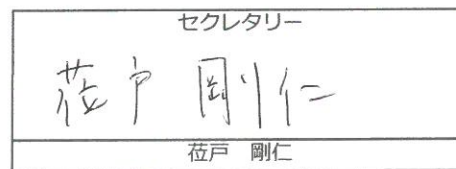 セクレタリー
莅戸 剛仁
莅戸 剛仁